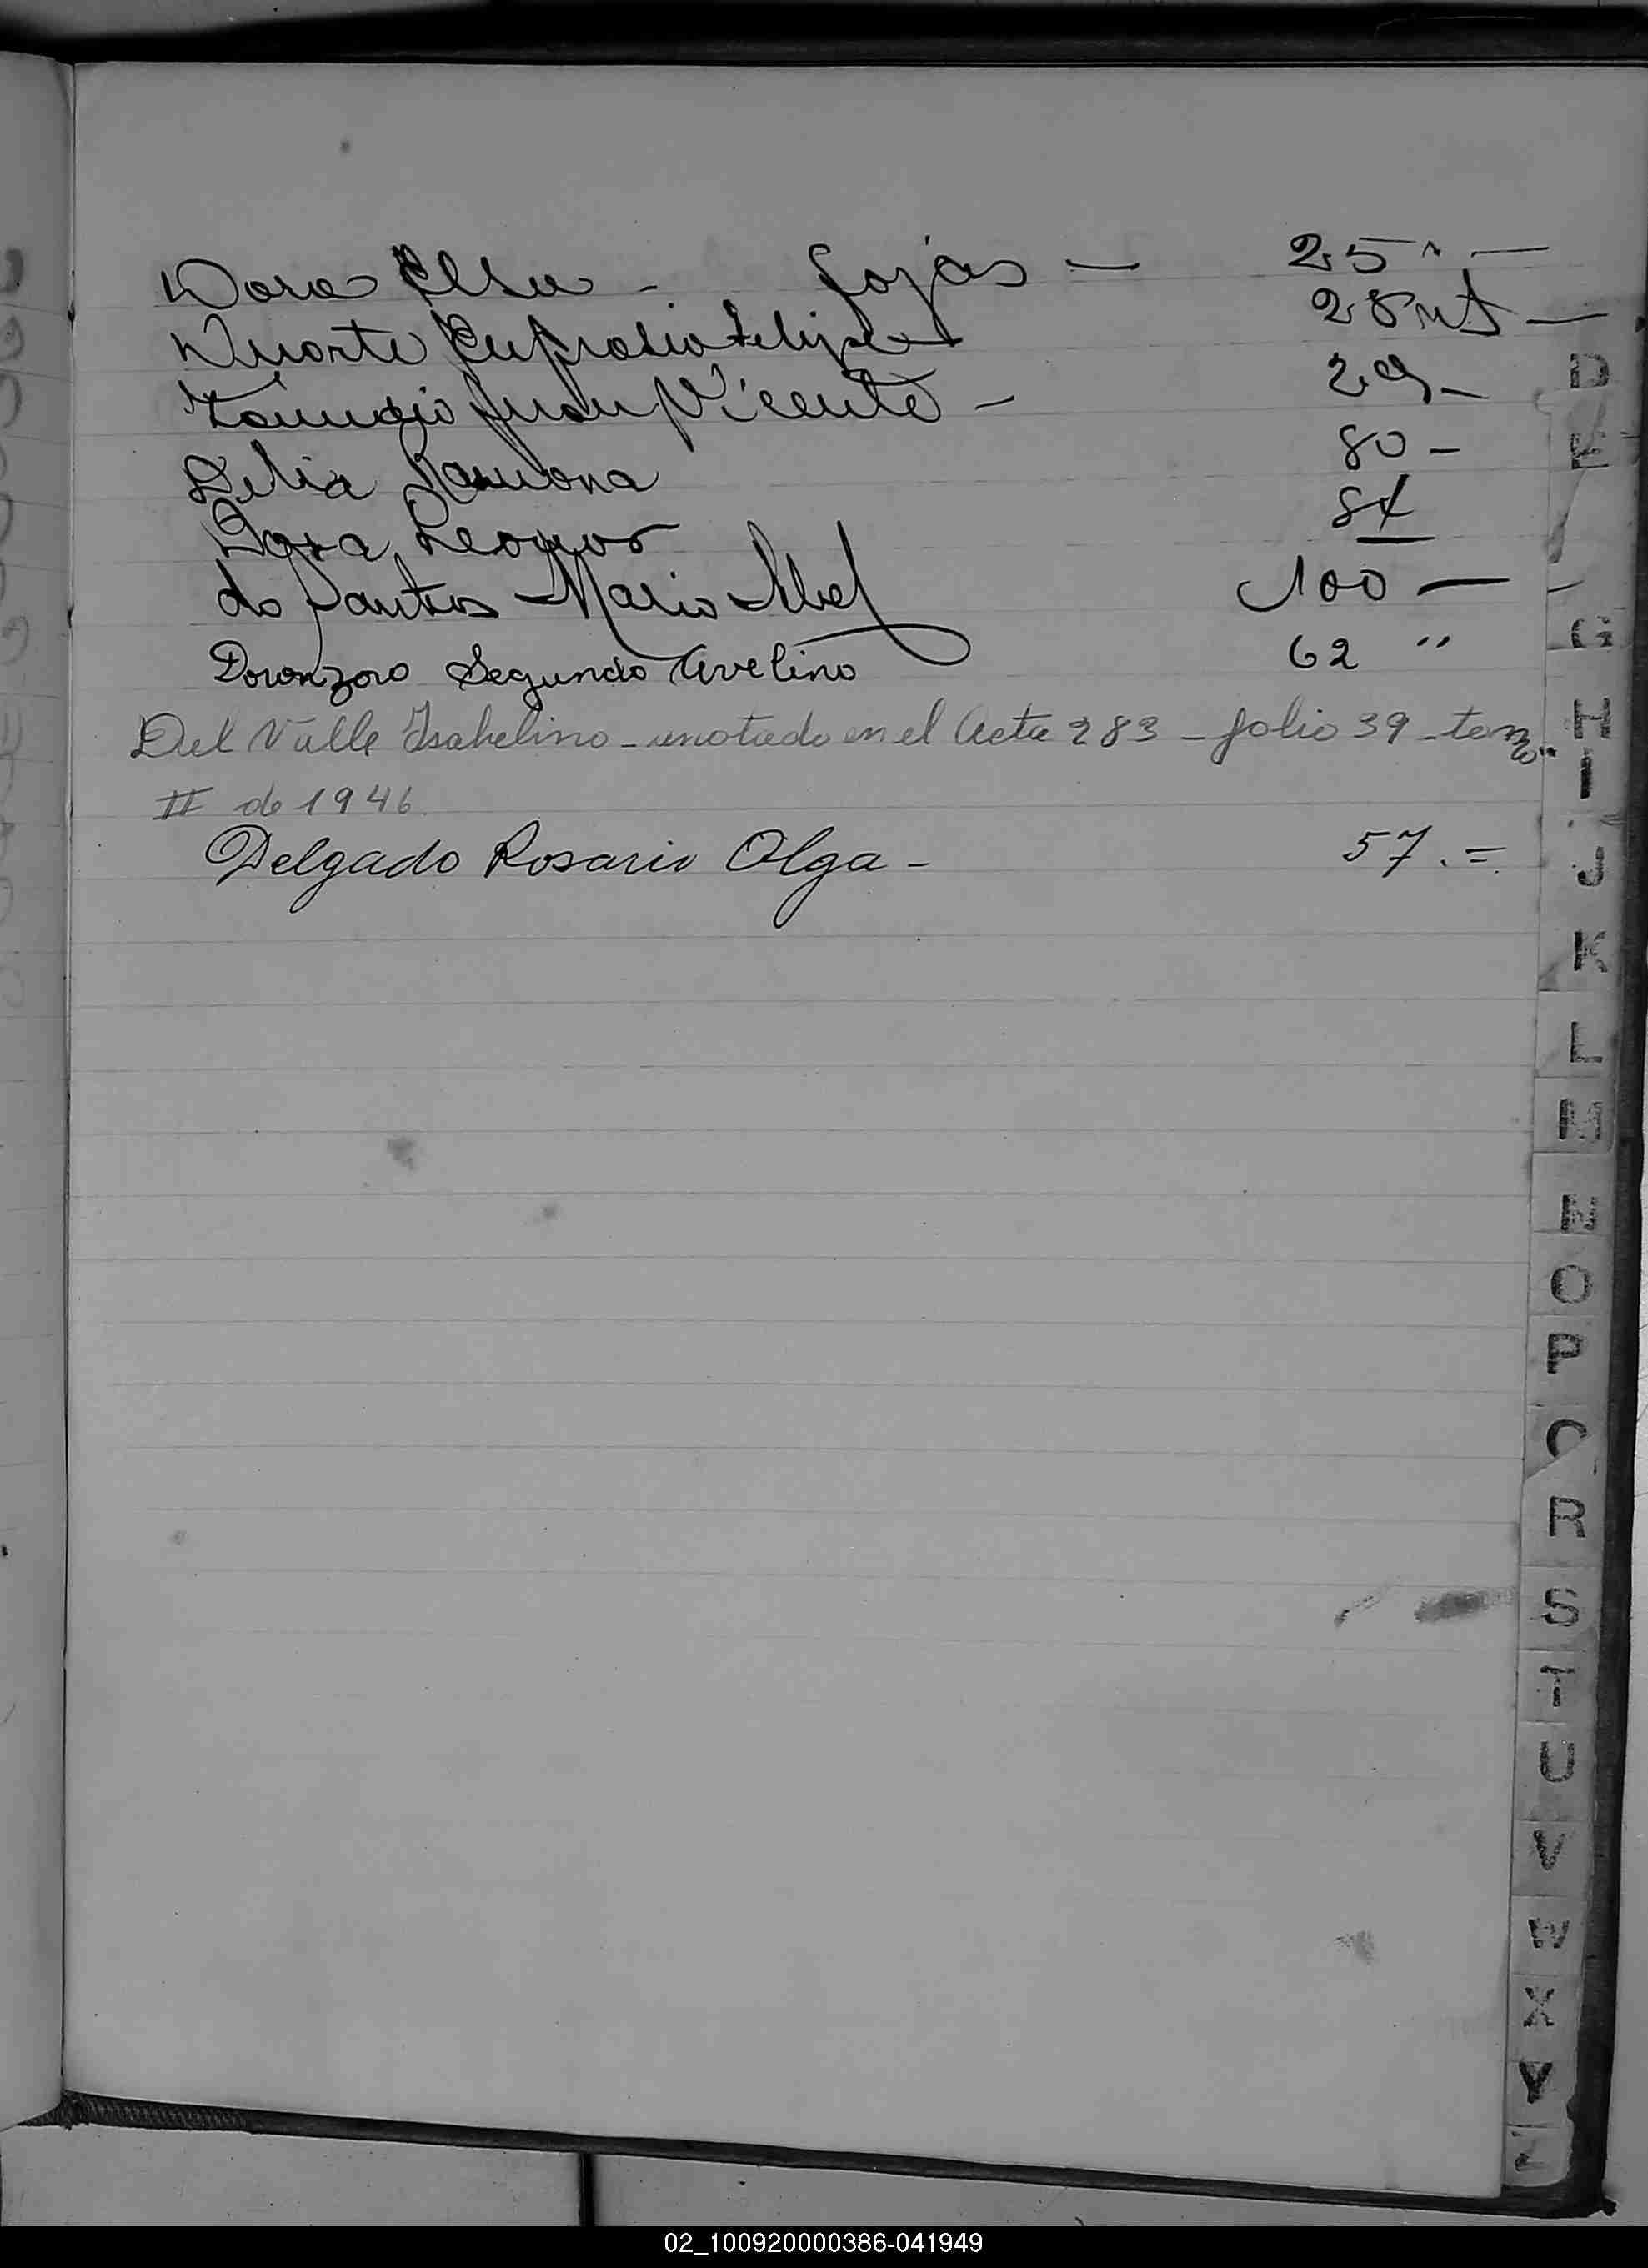 Dora Elsa - fojas - 25 " -
Duarte Eufrasio Felipe 28 vt -
Juan Vicente - 29 -
Delia Ramona 80 -
Dora Leonor 84
do Santos Mario Abel 100 -
Doronzoro Segundo Avelino 62 "
Del Valle Isabelino - anotado en el Acta 283 - folio 39 - tomo
II de 1946.
Delgado Rosario Olga - 57. =
D
E
G
H
I
J
K
L
M
N
O
P
R
S
T
U
V
W
X
Y
02_100920000386-041949